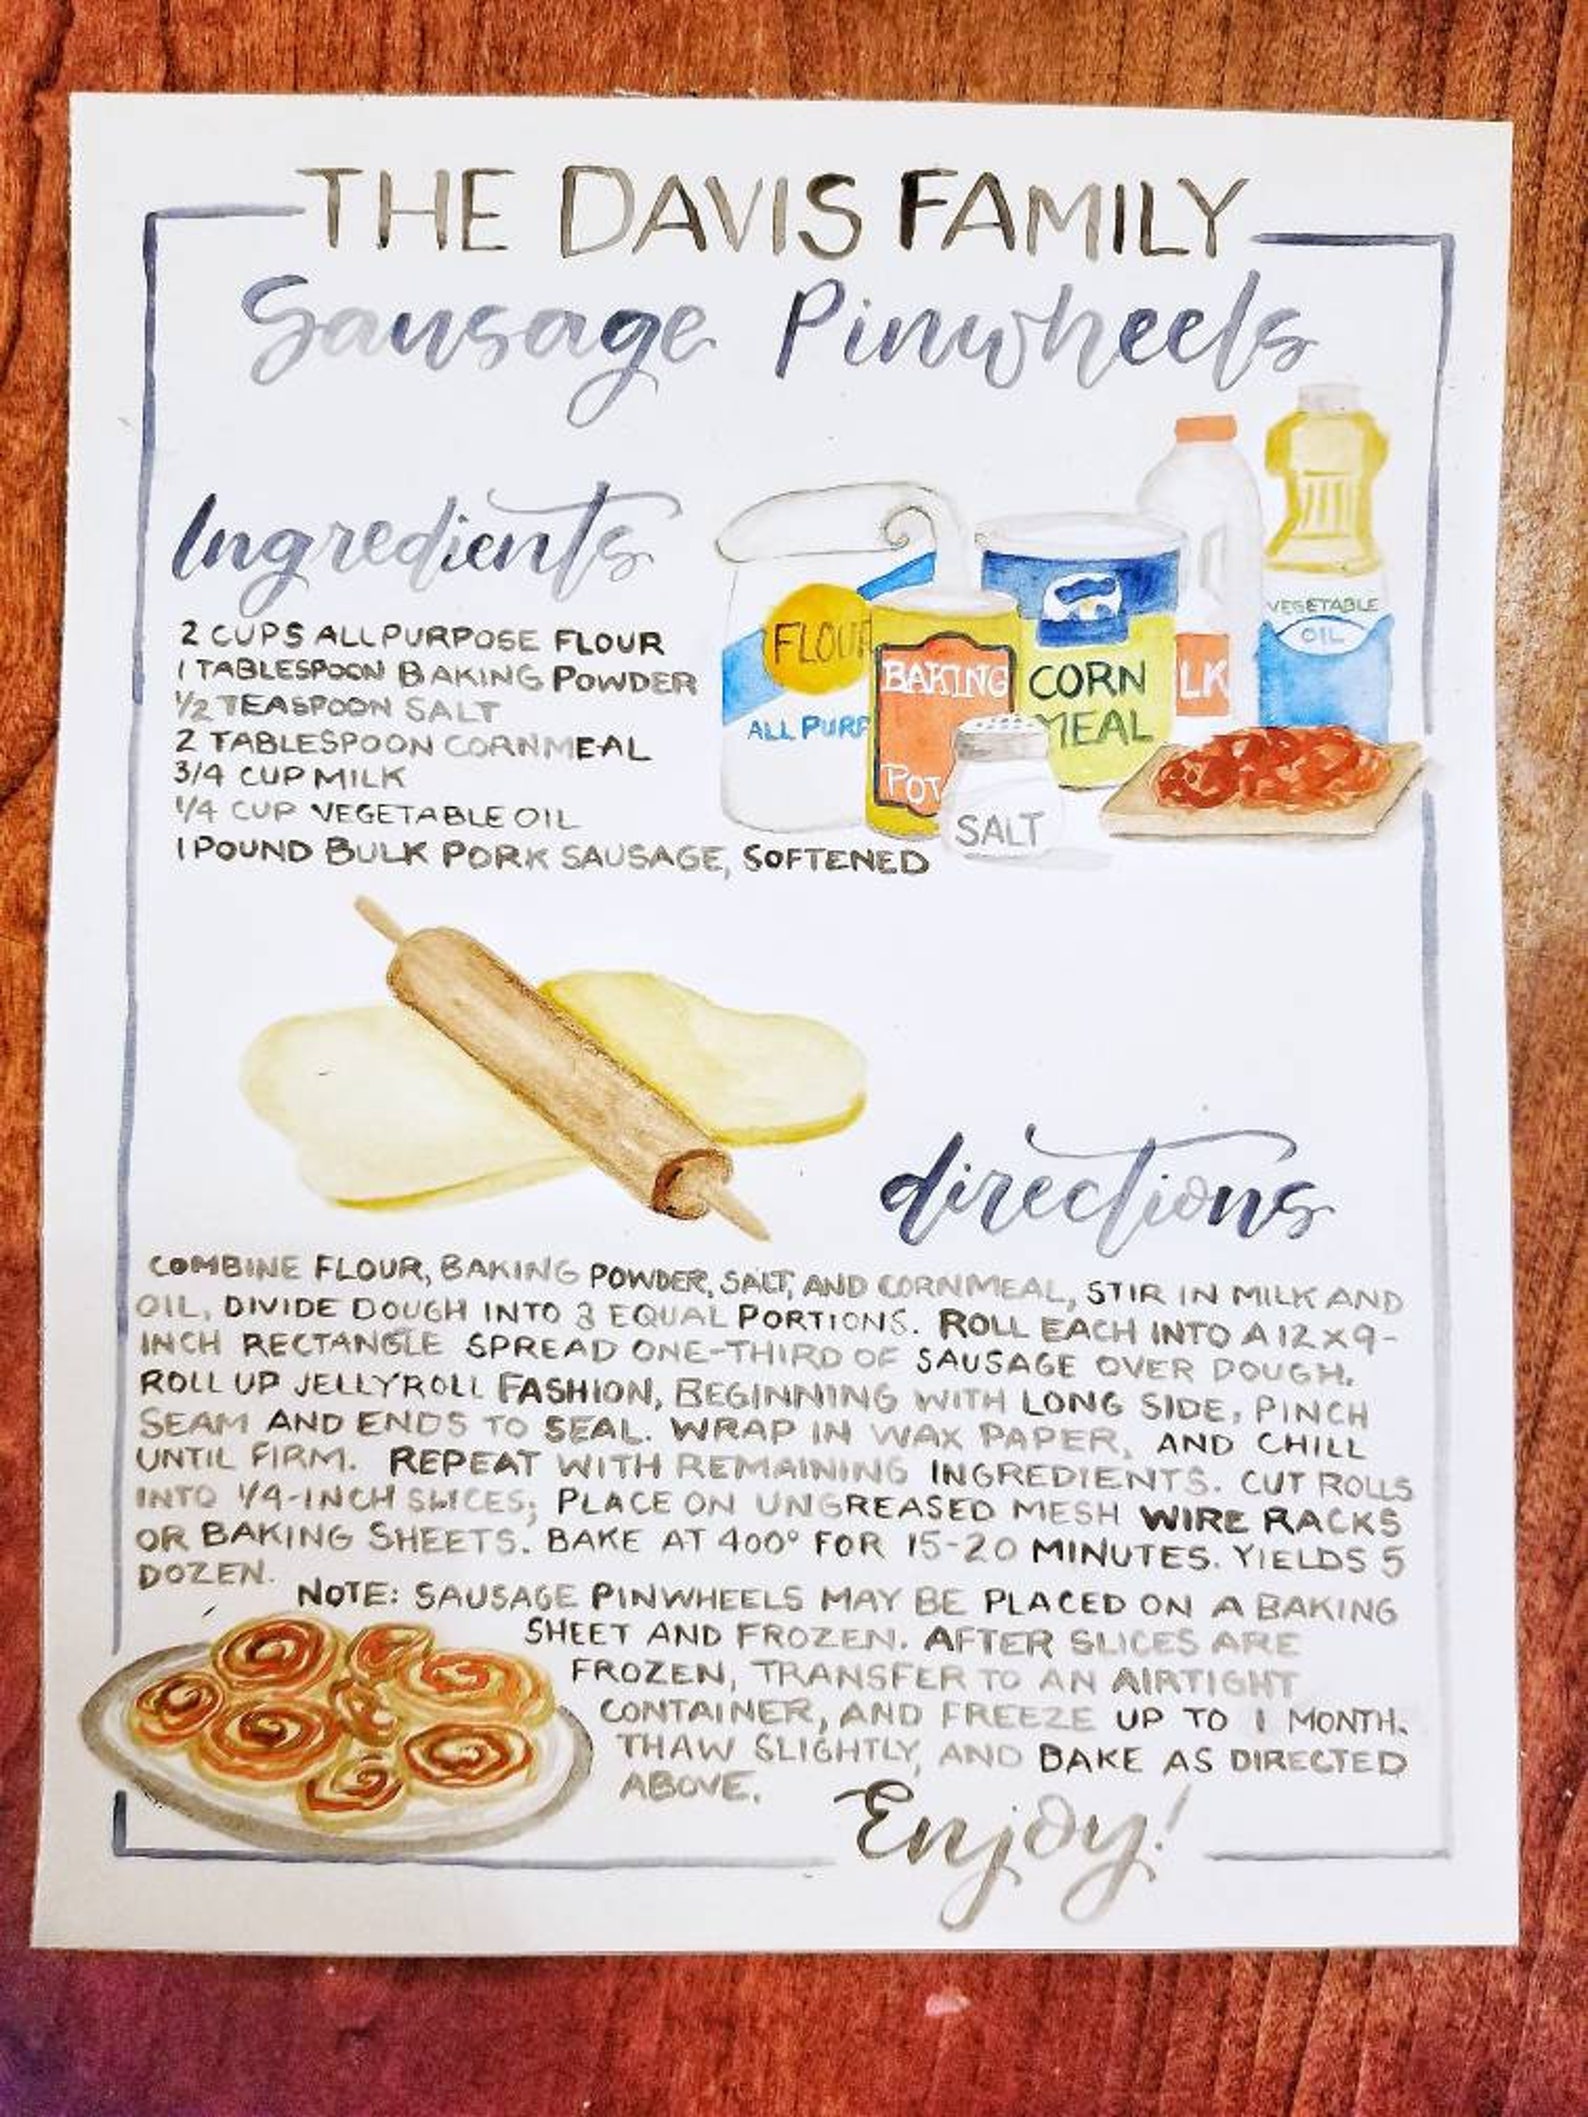 THE DAVIS FAMILY
Sausage Pinwheels
Ingredients
2 CUPS ALL PURPOSE FLOUR
1 TABLESPOON BAKING POWDER
1/2 TEASPOON SALT
2 TABLESPOON CORNMEAL
3/4 CUP MILK
1/4 CUP VEGETABLE OIL
1 POUND BULK PORK SAUSAGE, SOFTENED
FLOUR
ALL PURP
BAKING
POW
SALT
CORN
MEAL
LK
VEGETABLE
OIL
directions
COMBINE FLOUR, BAKING POWDER, SALT, AND CORNMEAL, STIR IN MILK AND
OIL, DIVIDE DOUGH INTO 3 EQUAL PORTIONS. ROLL EACH INTO A 12 X 9-
INCH RECTANGLE SPREAD ONE-THIRD OF SAUSAGE OVER DOUGH.
ROLL UP JELLYROLL FASHION, BEGINNING WITH LONG SIDE, PINCH
SEAM AND ENDS TO SEAL. WRAP IN WAX PAPER, AND CHILL
UNTIL FIRM. REPEAT WITH REMAINING INGREDIENTS. CUT ROLLS
INTO 1/4-INCH SLICES; PLACE ON UNGREASED MESH WIRE RACKS
OR BAKING SHEETS. BAKE AT 400° FOR 15-20 MINUTES. YIELDS 5
DOZEN.
NOTE: SAUSAGE PINWHEELS MAY BE PLACED ON A BAKING
SHEET AND FROZEN. AFTER SLICES ARE
FROZEN, TRANSFER TO AN AIRTIGHT
CONTAINER, AND FREEZE UP TO 1 MONTH.
THAW SLIGHTLY, AND BAKE AS DIRECTED
ABOVE.
Enjoy!